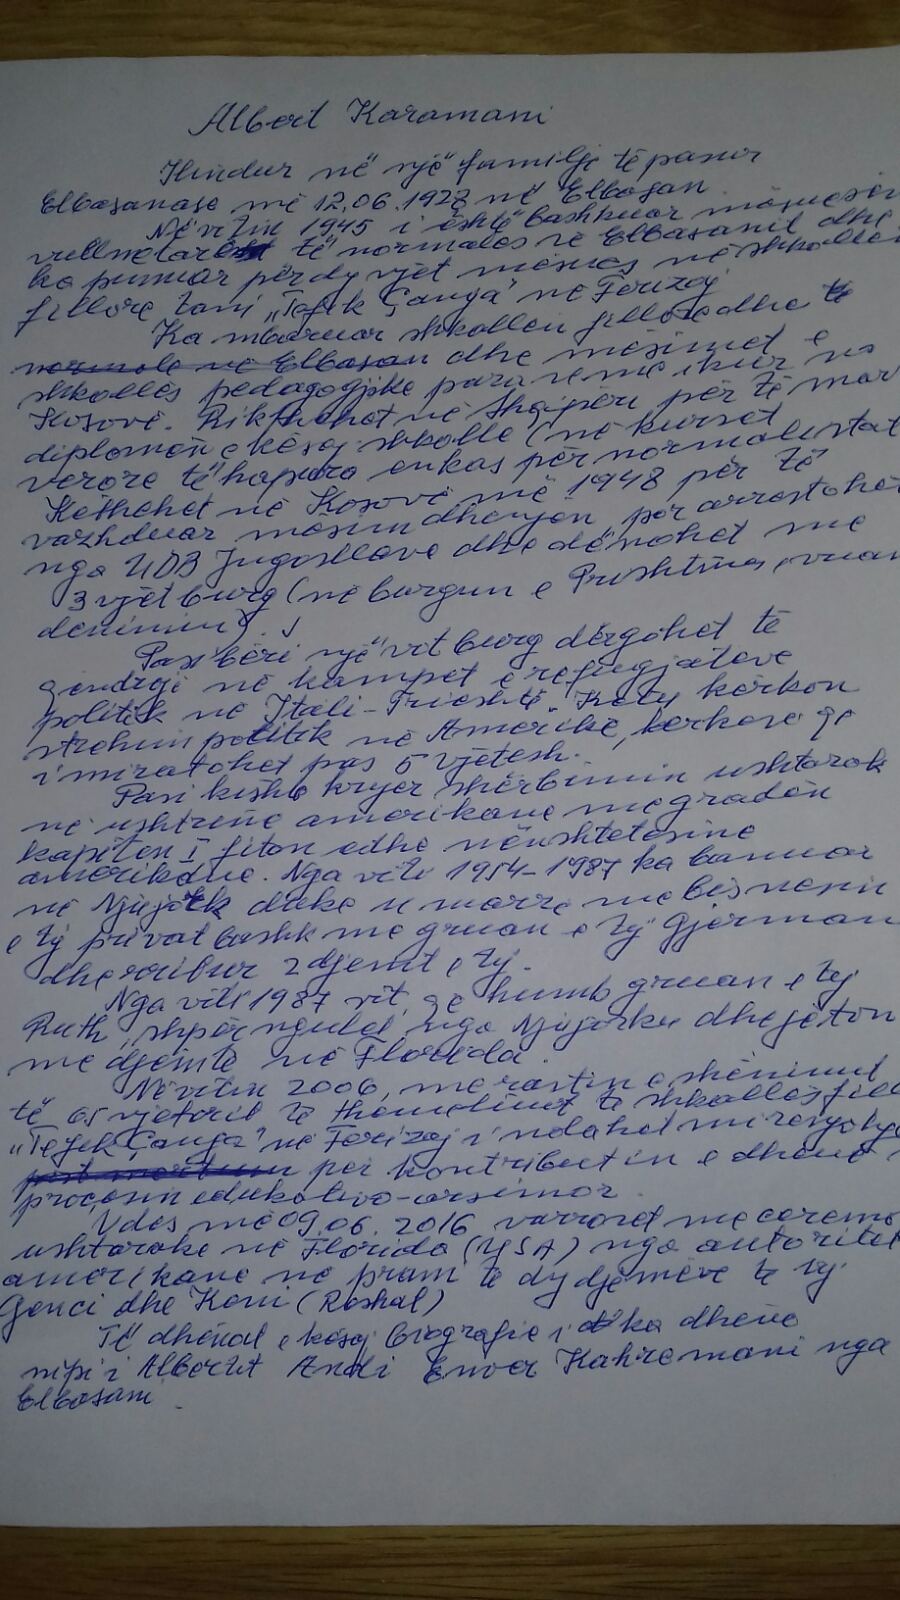 Albert Karamani
I lindur në një familje të pasur
Elbasanase më 12.06.1928 në Elbasan.
Në vitin 1945 i është bashkuar mësuesve
vullnetarë të normales së Elbasanit dhe
ka punuar për dy vjet mësues në shkollën
fillore tani "Tefik Çanga" në Ferizaj
Ka mbaruar shkollën fillore dhe të
normale në Elbasan dhe mësimet e
shkollës pedagogjike para se me ikur në
Kosovë. Rikthehet në Shqipëri për të marr
diplomën e kësaj shkolle (në kurset
verore të hapura enkas për normalistat
Kethehet në Kosovë më 1948 për të
vazhduar mësimdhenjen, por arrestohet
nga UDB Jugosllave dhe dënohet me
3 vjet burg (në burgun e Prishtinës, vuan
denimin).
Pasi bëri një vit burg dërgohet të
qendroje në kampet e refugjatëve
politik në Itali-Trieshtë. Këty kërkon
strehim politik në Amerikë, kerkese që
i miratohet pas 5 vjetësh.
Pasi kishte kryer shërbimin ushtarak
në ushtrinë amerikane me gradën
kapiten I fiton edhe nënshtetësinë
amerikane. Nga viti 1954-1987 ka banuar
në Njujork duke u marrë me bisnesin
e tij privat bashk me gruan e tij Gjermane
dhe 2 djemt e tij.
Nga viti 1987 vit, qe humb gruan e tij
Ruth, shpërngulet nga Njujorku dhe jeton
me djemte në Florida.
Në vitin 2006, me rastin e shënimit
të 65 vjetorit të themelimit të shkollës fill
"Tefik Çanga" në Ferizaj i ndahet mirenjohje
post mortum për kontributin e dhënë
procesin edukativo-arsimor.
Vdes më 09.06.2016 varroset me ceremo
ushtarake në Florida (USA) nga autoritet
amerikane në prani të dy djemëve të tij
Genci dhe Keni (Roshal)
Të dhënat e kësaj biografie i ka dhënë
nipi i Albertit Andi Enver Kahremani nga
Elbasani.